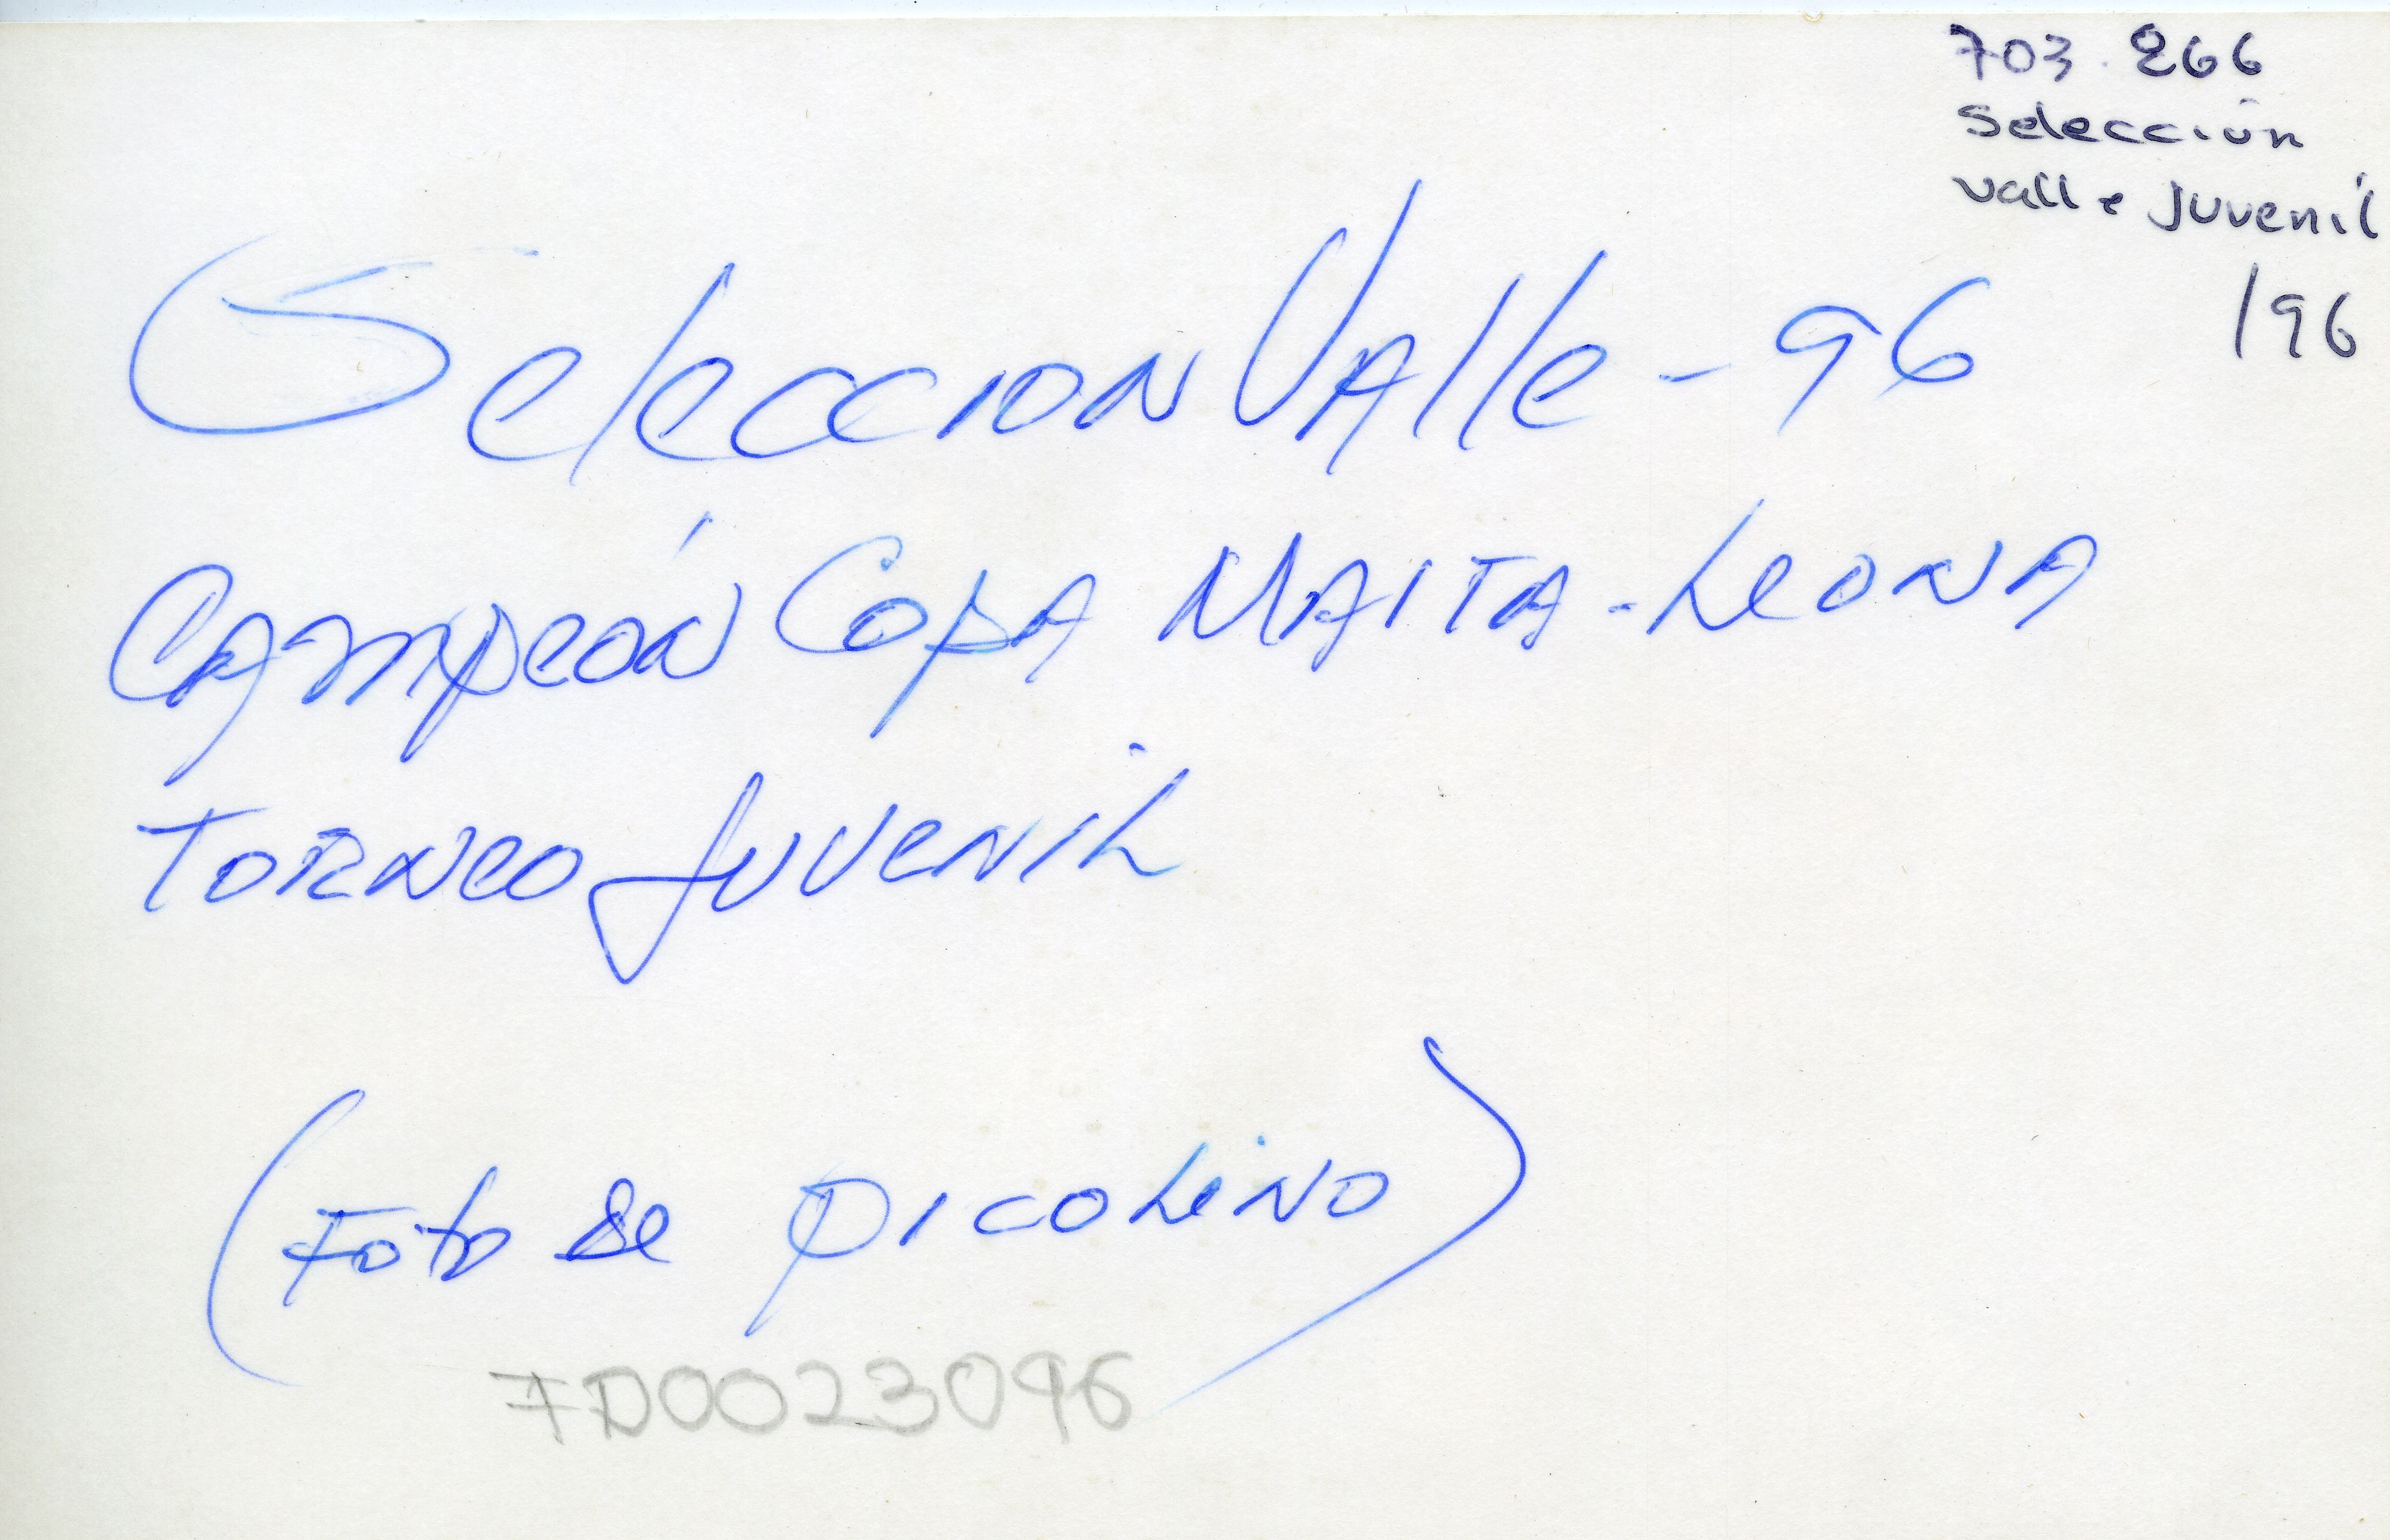 703.266
Selección
Valle Juvenil
/96
Seleccion Valle-96
Campeón Copa Maita-Leona
Torneo Juvenil
(Foto de Picolino)
FD0023096